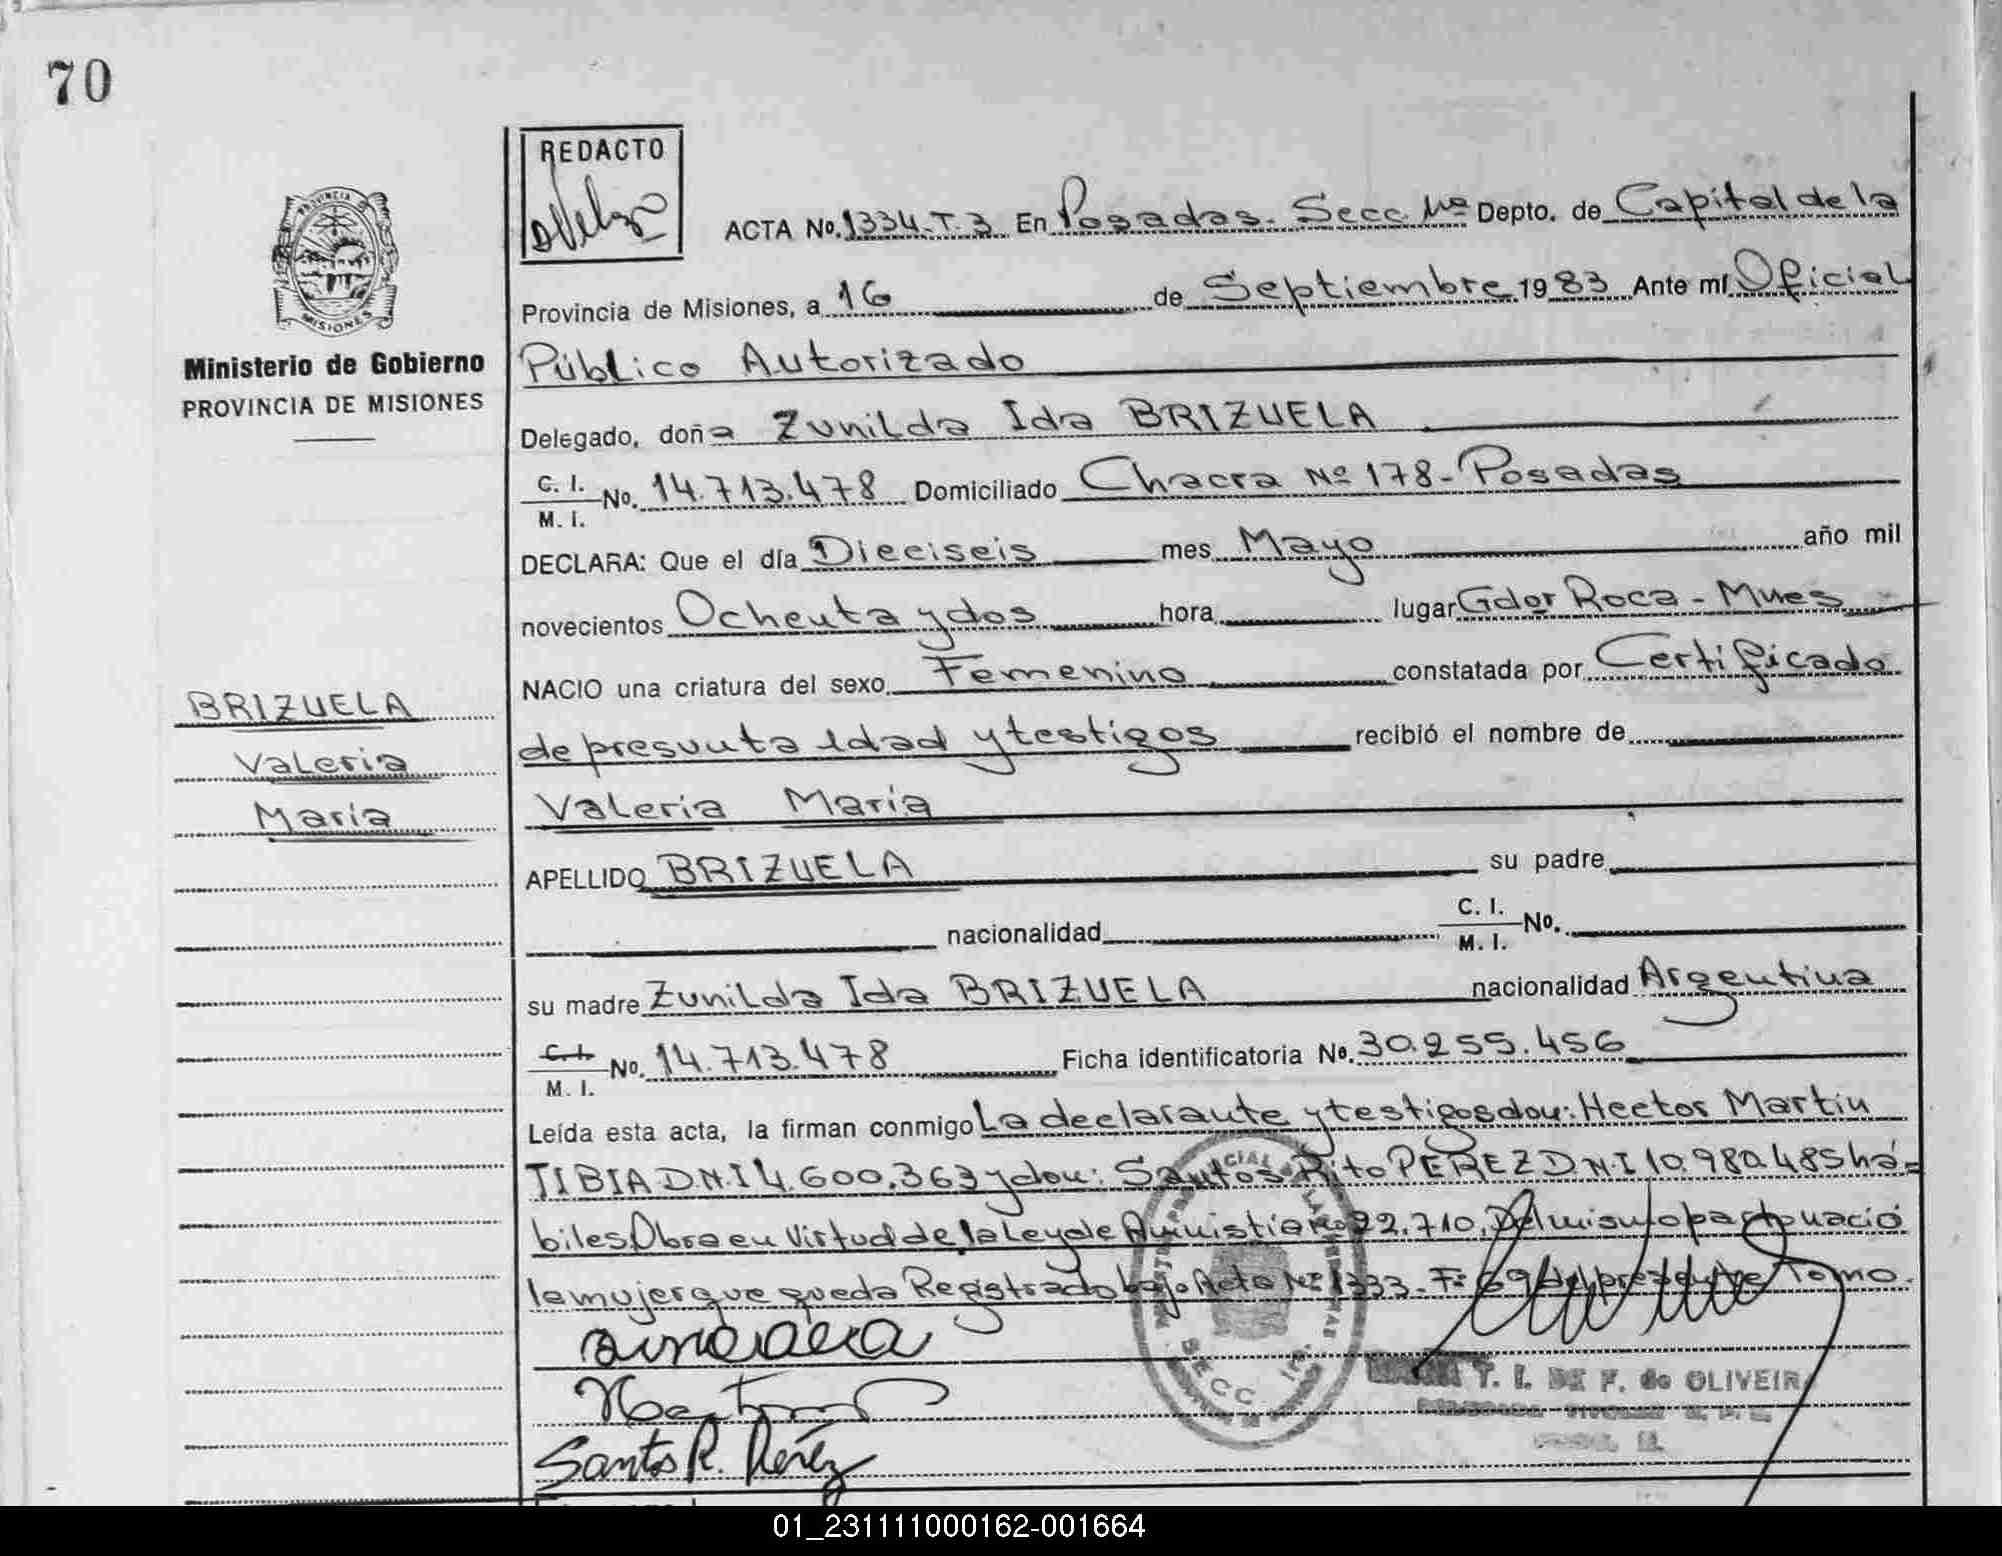 70
REDACTO
PROVINCIA DE
MISIONES
Ministerio de Gobierno
PROVINCIA DE MISIONES
ACTA No. 1334-T.3 En Posadas. Secc. 1ra Depto. de Capital de la
Provincia de Misiones, a 16 de Septiembre 1983 Ante mí Oficial
Público Autorizado
Delegado, doña Zunilda Ida BRIZUELA
C. I.
M. I. No. 14.713.478 Domiciliado Chacra Nº 178 - Posadas
DECLARA: Que el día Dieciseis mes Mayo año mil
novecientos Ochenta y dos hora lugar Gdor Roca - Mnes
NACIO una criatura del sexo Femenino constatada por Certificado
de presunta edad y testigos recibió el nombre de
Valeria María
APELLIDO BRIZUELA su padre
nacionalidad C. I.
M. I. No.
su madre Zunilda Ida BRIZUELA nacionalidad Argentina
C. I.
M. I. No. 14.713.478 Ficha identificatoria No. 30.255.456
Leída esta acta, la firman conmigo La declarante y testigos don: Hector Martin
TIBIA D.N.I 4.600.363 y don: Santos Rito PEREZ D.N.I 10.980.485 há=
biles. Obra en Virtud de la Ley de Aminístia Nº 22.710. Del mismo parto nació
la mujer que queda Registrado bajo Acta Nº 1333 - Fº 69 del presente Tomo.
BRIZUELA
Valeria
María
Santos R. Pérez
SECC. 1ra
T. I. DE F. de OLIVEIRA
01_231111000162-001664